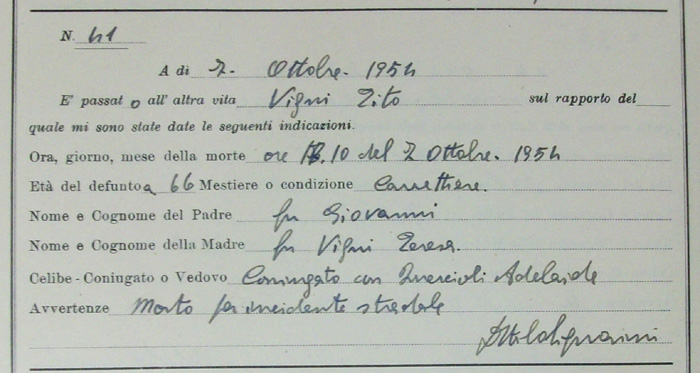 N. 41
A di 7. Ottobre. 1954
E' passato all'altra vita Vigni Zito sul rapporto del
quale mi sono state date le seguenti indicazioni.
Ora, giorno, mese della morte ore 10 del 7 Ottobre. 1954
Età del defunto a 66 Mestiere o condizione Carrettiere.
Nome e Cognome del Padre fu Giovanni
Nome e Cognome della Madre fu Vigni Teresa.
Celibe - Coniugato o Vedovo Coniugato con Quercioli Adelaide
Avvertenze Morto per incidente stradale